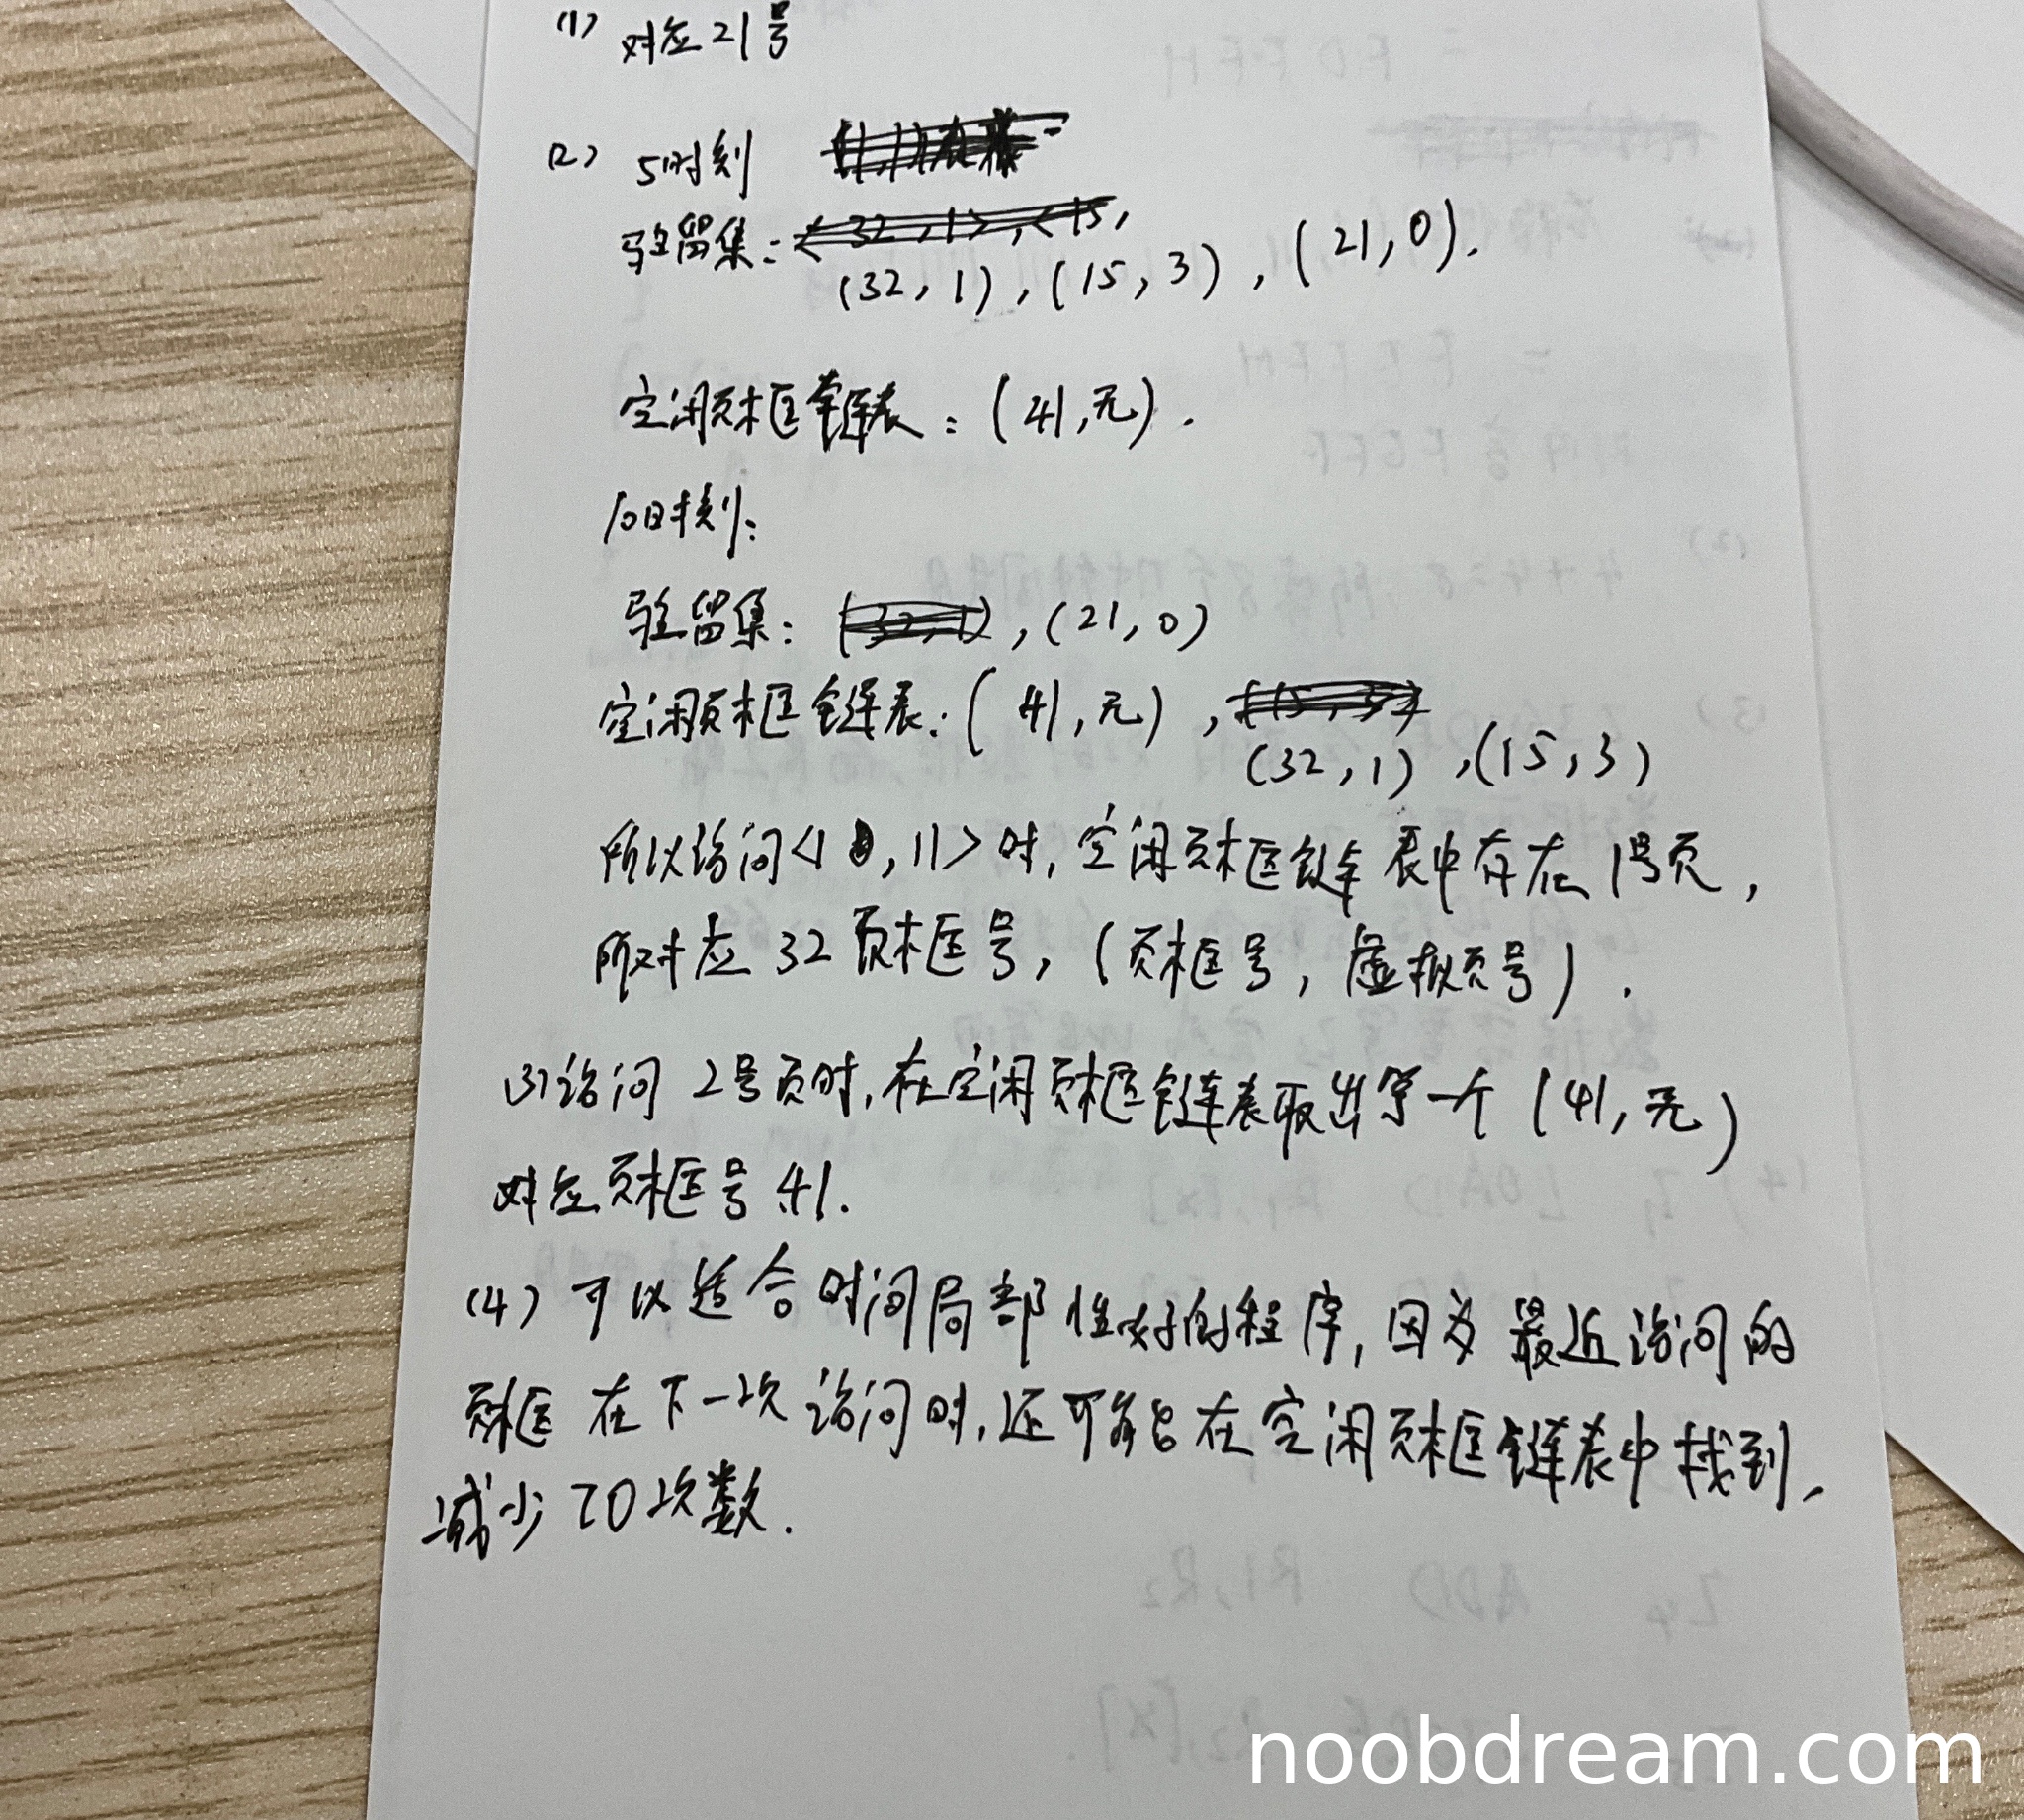 (1) 对应21号
(2) 5时刻
驻留集: <32,1>,<15,
(32,1),(15,3),(21,0).
空闲页框链表:(41,无).
10时刻:
驻留集: (32,1),(21,0)
空闲页框链表:(41,无),(15,3)
(32,1),(15,3)
所以访问<1,11>时,空闲页框链表中存在1号页,
所对应32页框号,(页框号,虚拟页号).
(3)访问2号页时,在空闲页框链表取出第一个(41,无)
对应页框号41.
(4)可以适合时间局部性好的程序,因为最近访问的
页框在下一次访问时,还可能在空闲页框链表中找到,
减少IO次数.
noobdream.com